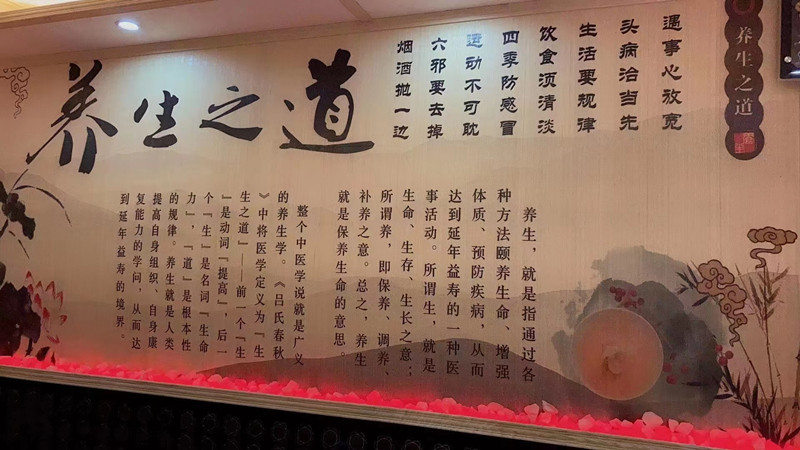 养生之道
遇事心放宽
头病治当先
生活要规律
饮食须清淡
四季防感冒
运动不可耽
六邪要去掉
烟酒抛一边
养生之道
养生，就是指通过各
种方法颐养生命、增强
体质、预防疾病，从而
达到延年益寿的一种医
事活动。所谓生，就是
生命、生存、生长之意；
所谓养，即保养、调养、
补养之意。总之，养生
就是保养生命的意思。
整个中医学说就是广义
的养生学。《吕氏春秋
》中将医学定义为『生
生之道』——前一个『生
』是动词『提高』，后一
个『生』是名词『生命
力』，『道』是根本性
的规律。养生就是人类
提高自身组织、自身康
复能力的学问，从而达
到延年益寿的境界。